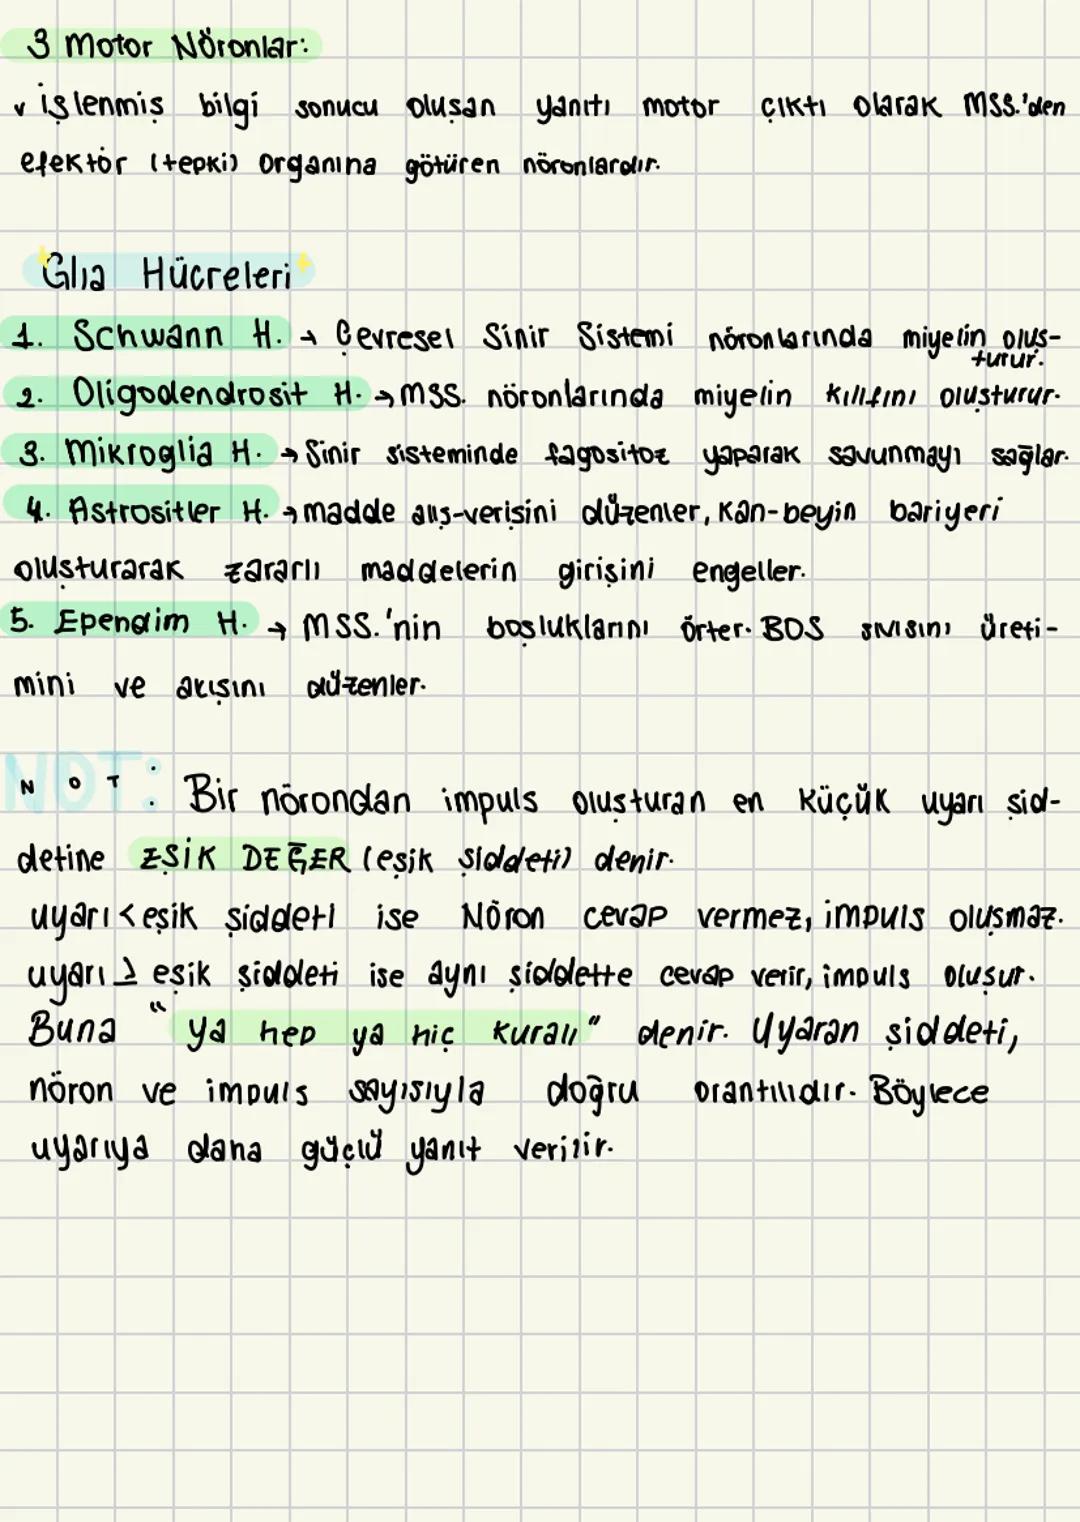 3 Motor Nöronlar:
işlenmiş bilgi sonucu oluşan yanıtı motor çıktı olarak MSS.'den
efektör (tepki) organına götüren nöronlardır.
Glia Hücreleri
1. Schwann H. → Çevresel Sinir Sistemi nöronlarında miyelin oluş-
turur.
2. Oligodendrosit H. → MSS. nöronlarında miyelin kılıfını oluşturur.
3. Mikroglia H. → Sinir sisteminde fagositoz yaparak savunmayı sağlar.
4. Astrositler H. → madde alış-verişini düzenler, kan-beyin bariyeri
oluşturarak zararlı maddelerin girişini engeller.
5. Ependim H. → MSS.'nin boşluklarını örter. BOS sıvısını üreti-
mini ve akışını düzenler.
NOT: Bir nörondan impuls oluşturan en küçük uyarı şid-
detine EŞİK DEĞER (eşik şiddeti) denir.
uyarı < eşik şiddeti ise Nöron cevap vermez, impuls oluşmaz.
uyarı ≥ eşik şiddeti ise aynı şiddette cevap verir, impuls oluşur.
Buna "ya hep ya hiç kuralı" denir. Uyaran şiddeti,
nöron ve impuls sayısıyla doğru orantılıdır. Böylece
uyarıya daha güçlü yanıt verilir.